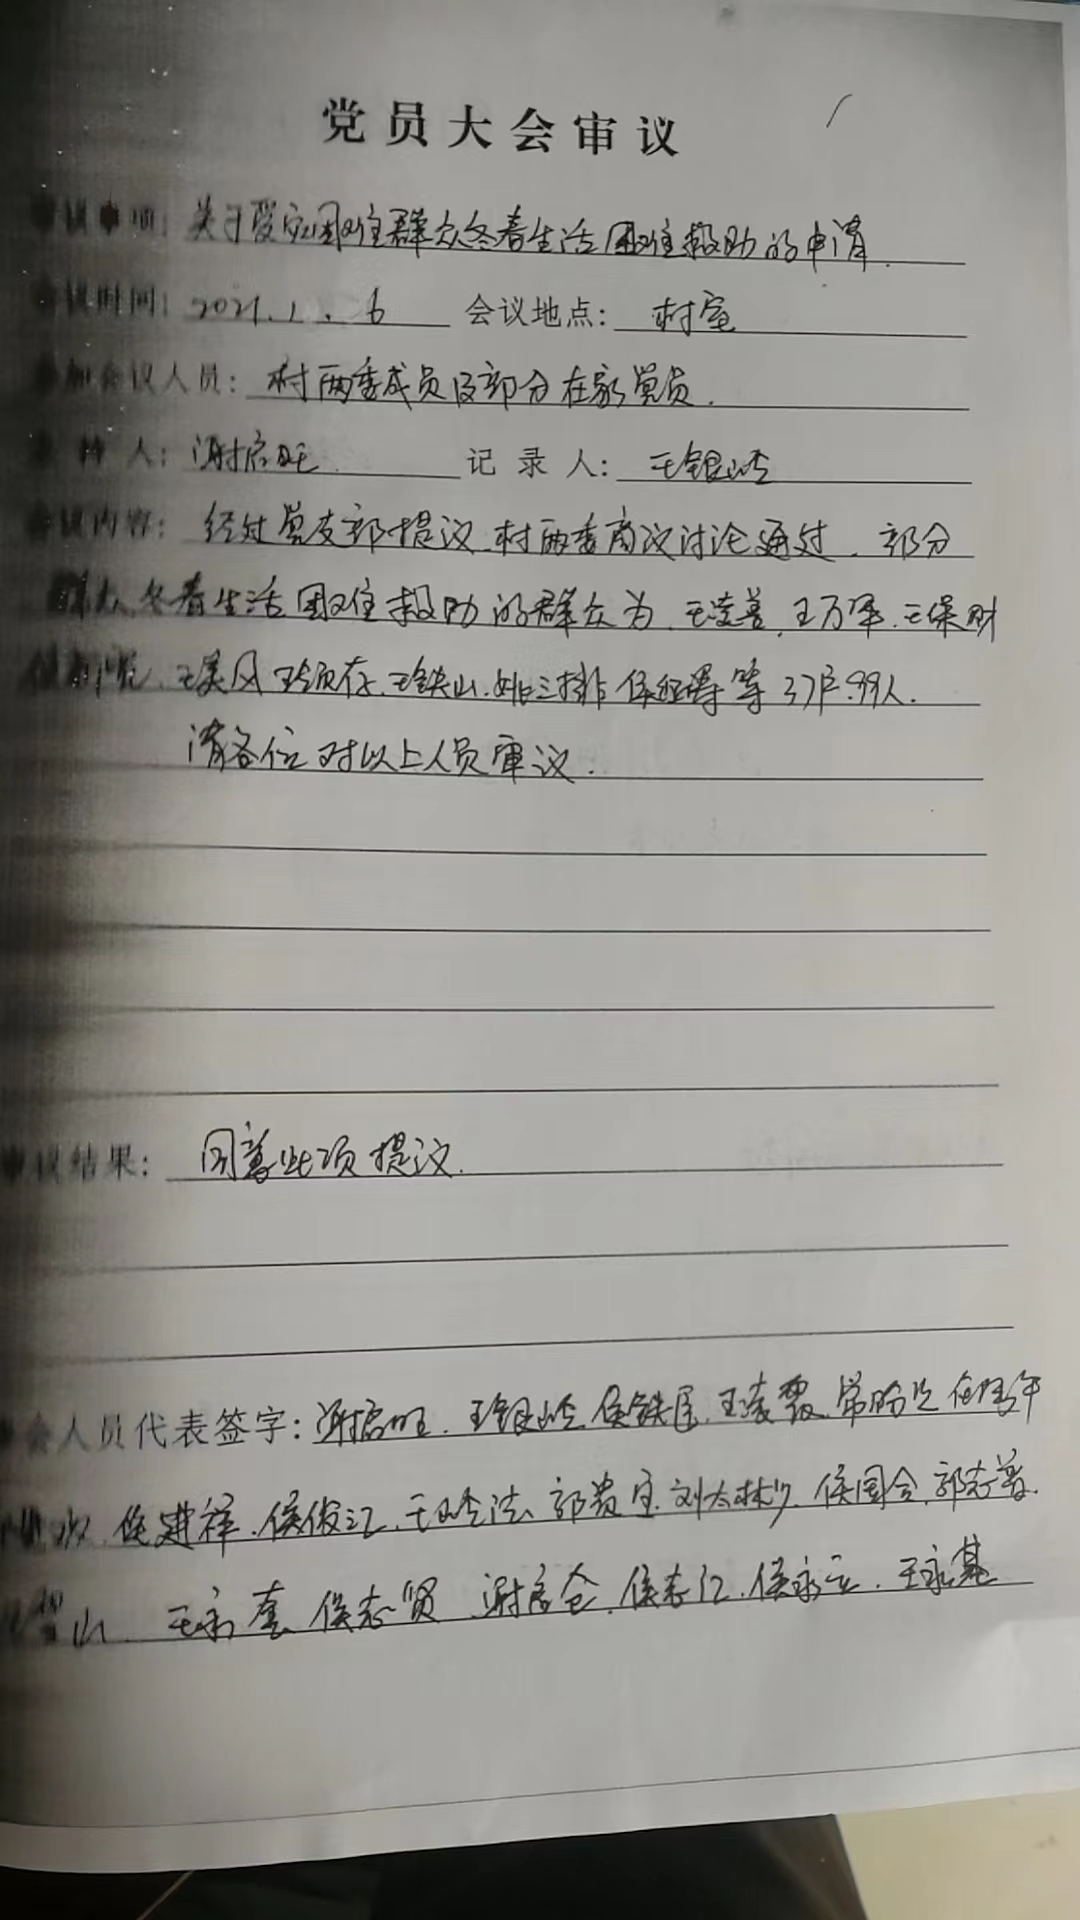 党员大会审议
议事项：关于受灾困难群众冬春生活困难救助的申请.
议时间：2021.1.6 会议地点：村室
加会议人员：村两委成员及部分在家党员.
持人：谢启旺 记录人：王银岭
议内容：经过党支部提议.村两委商议讨论通过.部分
群众冬春生活困难救助的群众为.王凌善.王万军.王保财
王美风 王铁山.姚三排 等37户.99人.
请各位对以上人员审议.
议结果：同意此项提议.
会人员代表签字：谢启旺.王银岭.侯铁臣.王凌霞
侯建祥.侯俊江.王 法.郭贵宝.刘太林.侯国会.郭志普.
山.王永奎 侯志贤 谢启仓.侯志江.侯永立.王永基